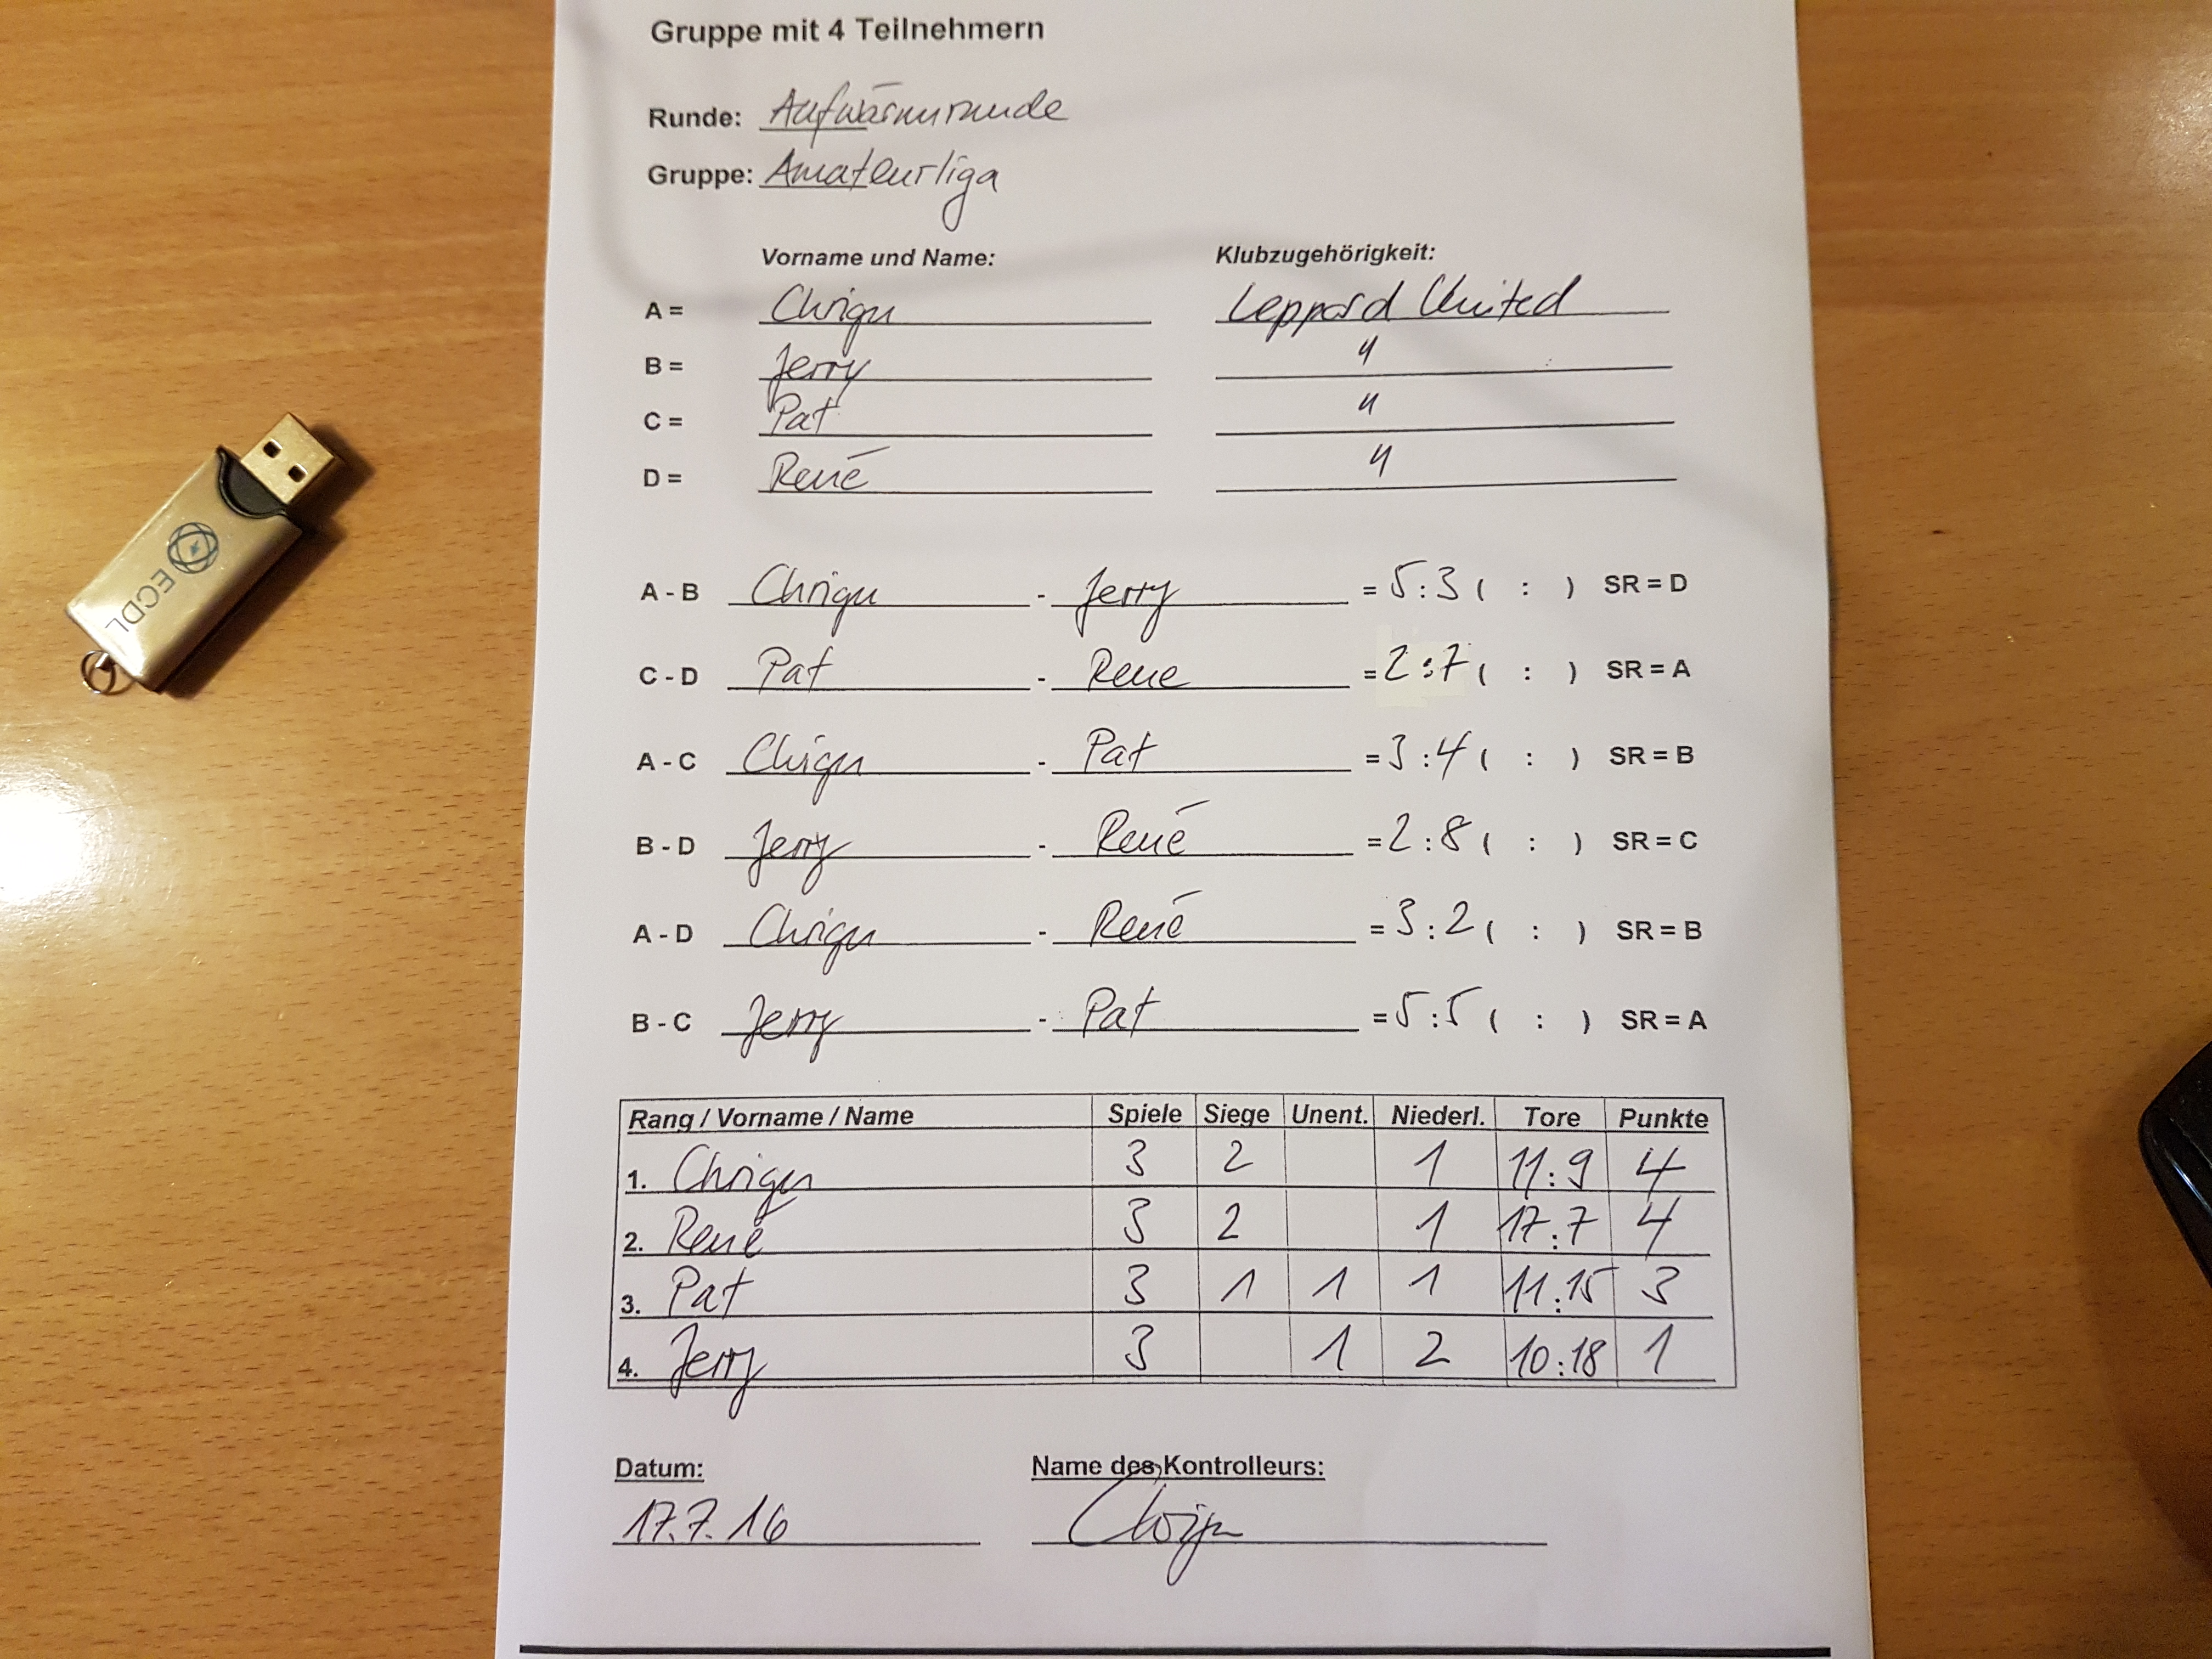 Gruppe mit 4 Teilnehmern
Runde: Aufwärmrunde
Gruppe: Amateurliga
Vorname und Name: Klubzugehörigkeit:
A = Chrigu Leppard United
B = Jerry "
C = Pat "
D = René "
A - B Chrigu - Jerry = 5:3 ( : ) SR = D
C - D Pat - Rene = 2:7 ( : ) SR = A
A - C Chrigu - Pat = 3:4 ( : ) SR = B
B - D Jerry - René = 2:8 ( : ) SR = C
A - D Chrigu - René = 3:2 ( : ) SR = B
B - C Jerry - Pat = 5:5 ( : ) SR = A
Rang / Vorname / Name Spiele Siege Unent. Niederl. Tore Punkte
1. Chrigu 3 2 1 11:9 4
2. René 3 2 1 17:7 4
3. Pat 3 1 1 1 11:15 3
4. Jerry 3 1 2 10:18 1
Datum: Name des Kontrolleurs:
17.7.16 Chrigu
ECDL